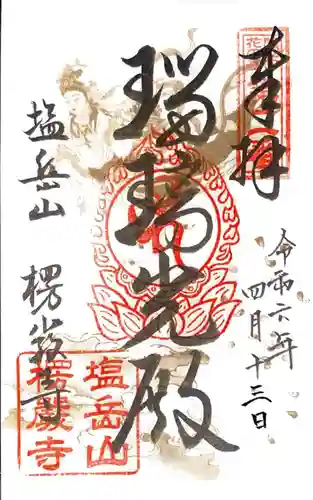 奉拝
令和六年
四月十三日
瑠璃光殿
塩岳山
楞嚴寺
塩岳山
楞厳寺